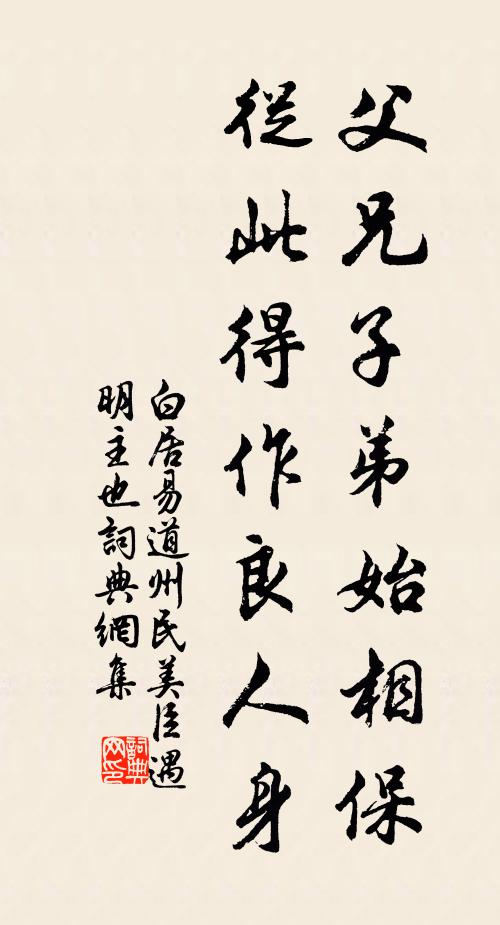 父兄子弟始相保
從此得作良人身
白居易道州民美臣遇
明主也詞典網集
詞典
网印